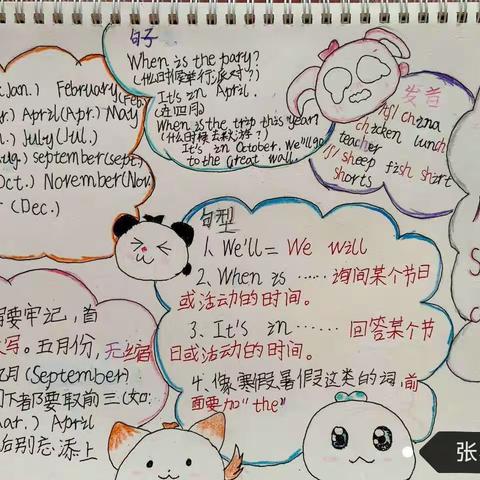 Jan.) February
(Feb
r.) April(Apr.) May
n.) July(Jul.)
Aug.) september(sept)
Oct.) November(Nov.
r (Dec.)
句子
When is the pary?
(什么时候举行派对?)
It's in April.
(在四月)
When is the trip this year?
(什么时候去秋游?)
It's in October. We'll go
to the Great wall.
发音
/tʃ/ china
chicken lunch
teacher
/ʃ/ sheep fish shirt
shorts
句型
1. We'll = We will
2. When is …… 询问某个节日
或活动的时间。
3. It's in …… 回答某个节
日或活动的时间。
4. 像寒假暑假这类的词,前
面要加"the"
要牢记,首
写。五月份,无缩
九月(September)
下者都要取前三(如:
Mar.) April
后别忘添上
张